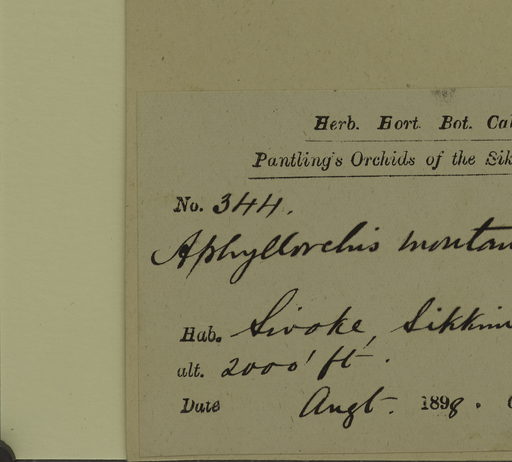 Herb. Hort. Bot. Cal
Pantling's Orchids of the Sik
No. 344.
Aphyllorchis montan
Hab. Sivoke, Sikkim
alt. 2000' ft.
Date Augt. 1898.